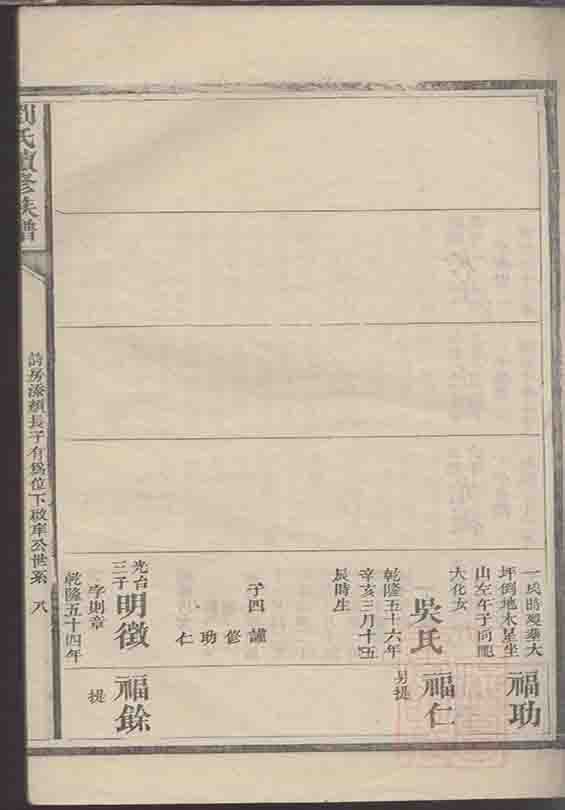 劉氏續修族譜
詩房添頫長子有為位下啟庠公世系 八
坪倒地木星坐
山左午子向配
大化女
吳氏
乾隆五十六年
辛亥三月十五
辰時生
子四 謹
修
功
仁
光台
三子
明徵
字則章
乾隆五十四年
福功
福仁
另提
福餘
提